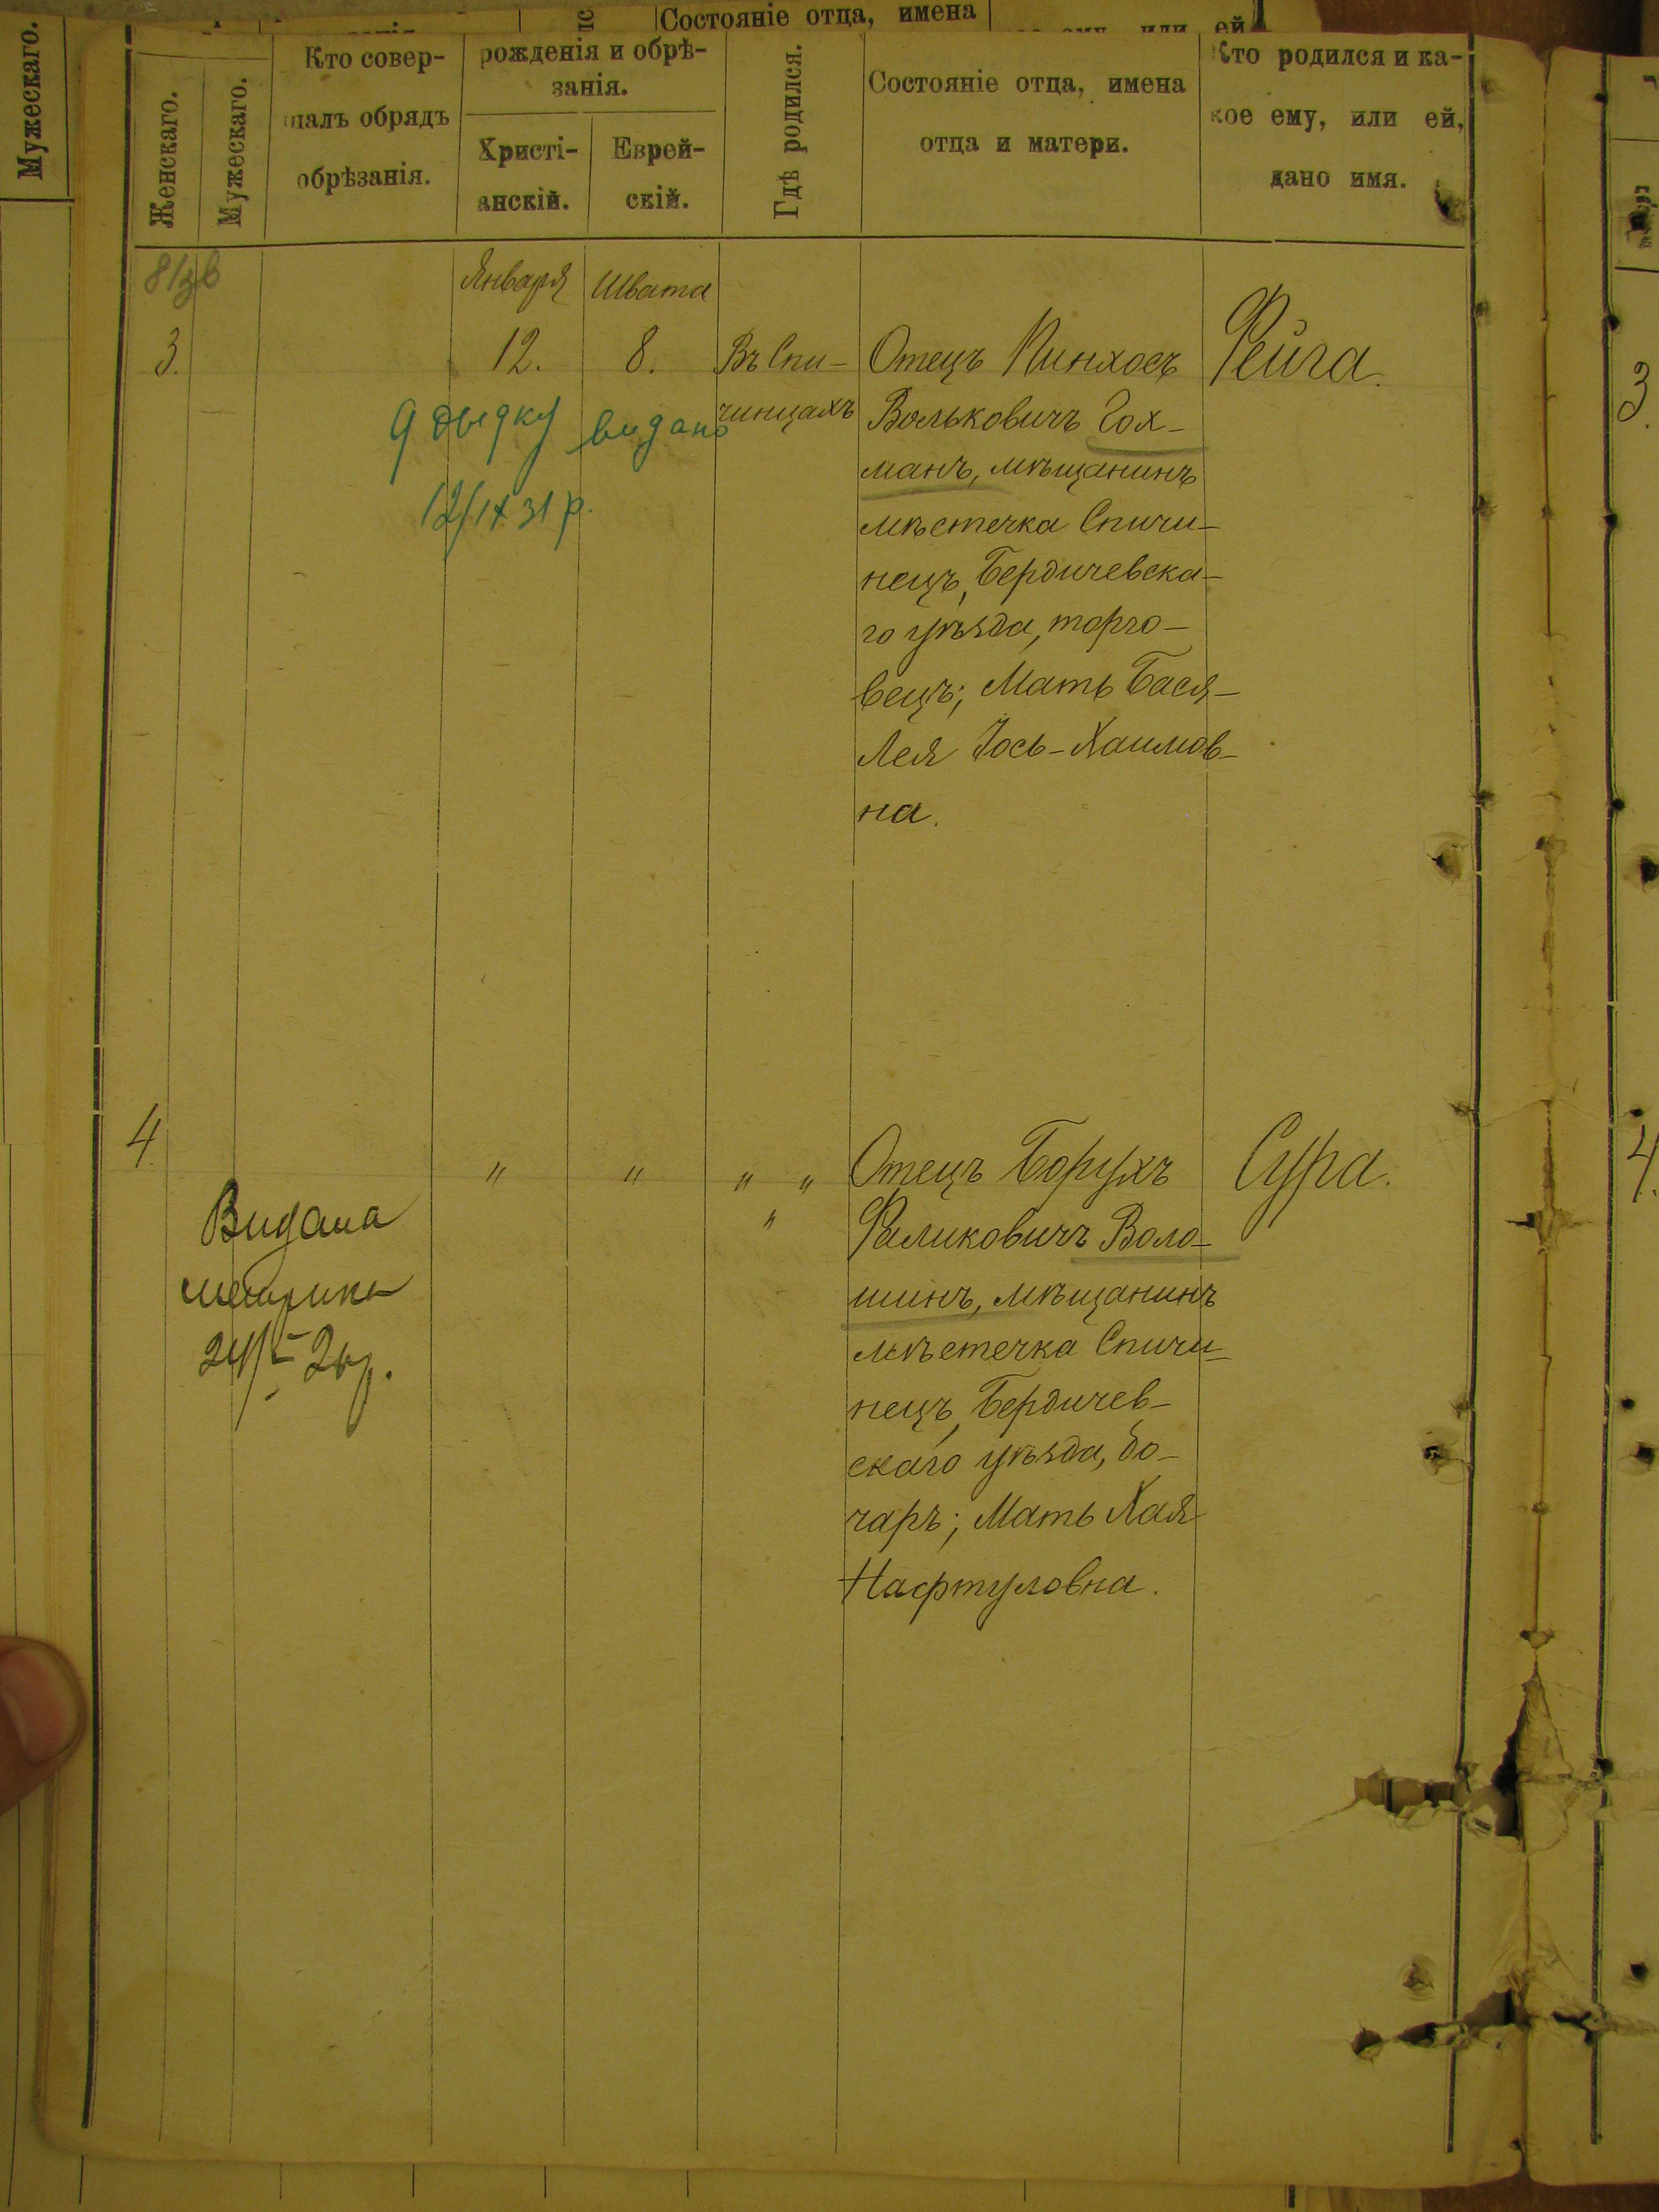 Состояніе отца, имена
Мужескаго.
Женскаго.
Мужескаго.
Кто совер-
шалъ обрядъ
обрѣзанія.
рожденія и обрѣ-
занія.
Христі-
анскій.
Еврей-
скій.
Гдѣ родился.
Состояніе отца, имена
отца и матери.
Кто родился и ка-
кое ему, или ей,
дано имя.
Января
Швата
3.
12.
8.
Въ Спи-
чинцахъ
Отецъ Пинхосъ
Вольковичъ Гох-
манъ, мѣщанинъ
мѣстечка Спичи-
нецъ, Бердичевска-
го уѣзда, торго-
вецъ; Мать Бася-
Лея Іось-Хаимов-
на.
Фейга.
видано
12/IX 31 р.
3.
4.
" " " "
"
Отецъ Борухъ
Фаликовичъ Воло-
шинъ, мѣщанинъ
мѣстечка Спичи-
нецъ, Бердичев-
скаго уѣзда, бо-
чаръ; Мать Хая
Нафтуловна.
Сура.
Видана
метрика
4.